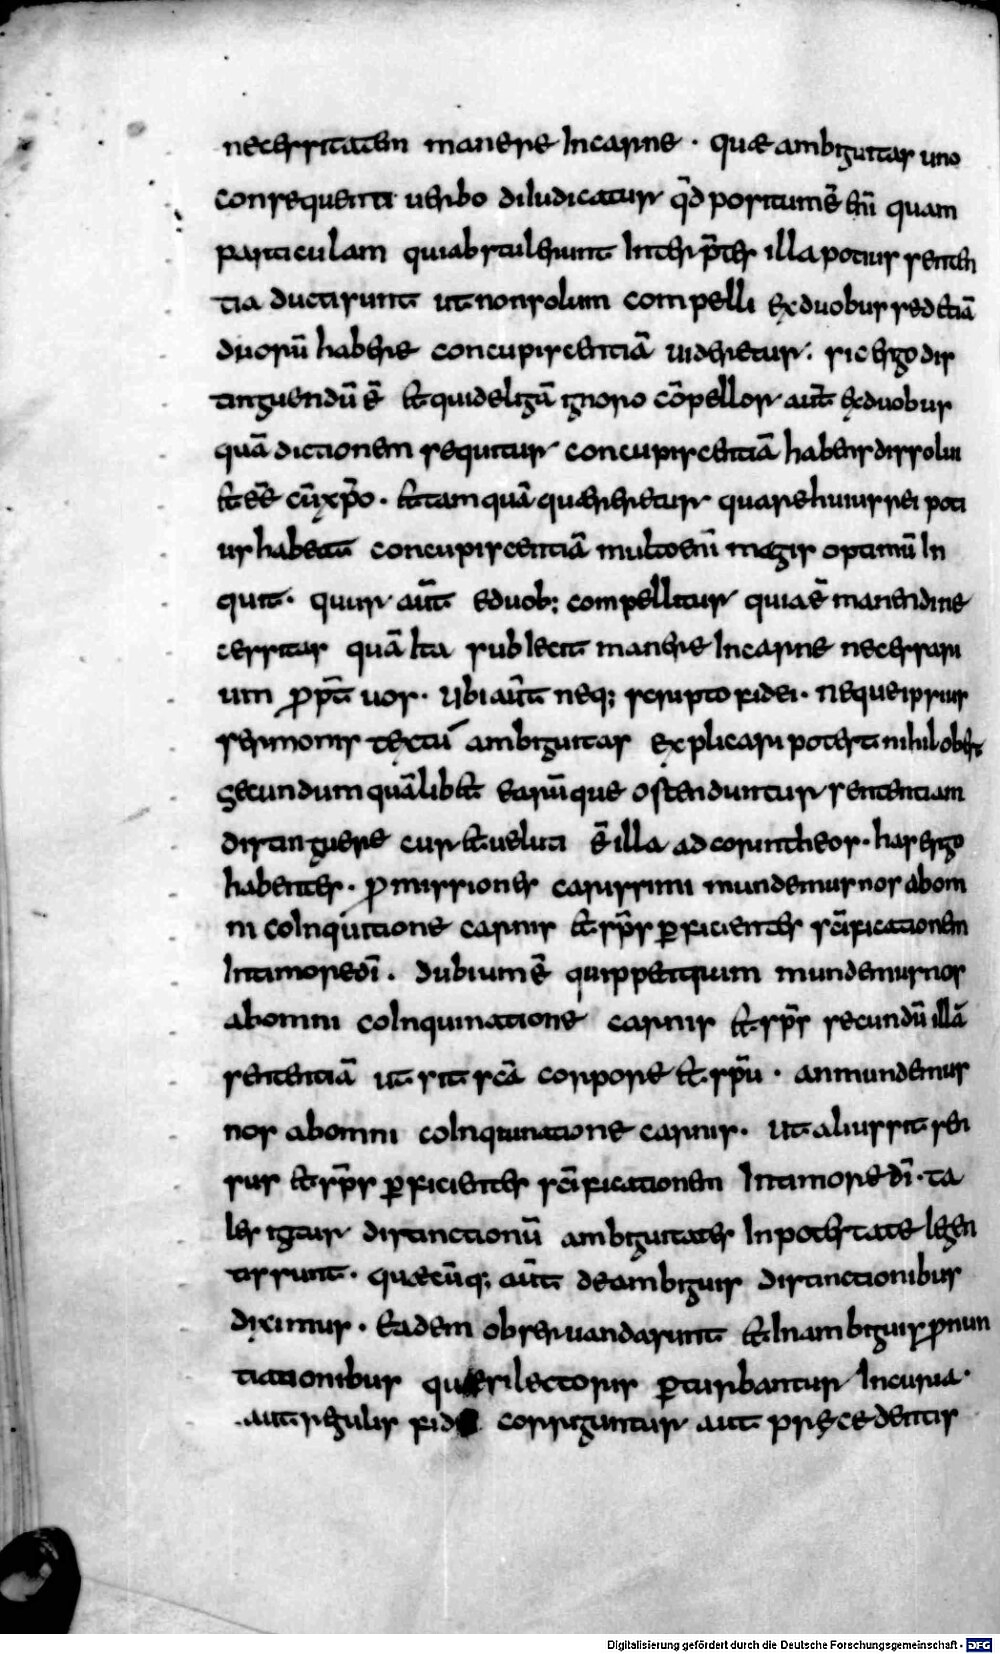 necessitatem manere Incarne · quae ambiguitas uno
consequenti uerbo diIudicatur q̄d positum ē eni̅ quam
particulam quiabstulerunt Interp̄tes illa potius senten
tia ducti sunt ut non solum compelli ex duobus sed etiā
duorū habere concupiscentiā uideretur · sic ergo dis
tinguendū ē et quid eligā ignoro cōpellor aut̄ ex duobus
quā dictionem sequitur concupiscentiā habens dissolui
et eē cū xp̄o · et tam quā quaereretur quare huius rei poti
us habeat concupiscentiā multo eni̅ magis optimū In
quit · quur aut̄ e duob; compellitur quia ē manendi ne
cessitas quā Ita subIecit manere Incarne necessari
um p̄pt̄ uos · Ubi aut̄ neq; scripto fidei · neque ipsius
sermonis textu ambiguitas explicari potest nihil obest
Secundum quālibet earūque ostenduntur sententiam
distinguere cur et ueluti ē illa ad corintheos · has ergo
habentes · p̄missiones carissimi mundemus nos abom
ni coInquitione carnis et sp̄s p̄ficientes sc̄ificationem
Intimore dī · dubium ē quippe utrum mundemus nos
abomni coInquinatione carnis et sp̄s secundū illā
sententiā ut sit sc̄a corpore et sp̄u · an mundemus
nos abomni coInquinatione carnis · ut alius sit sen
sus et sp̄s p̄ficientes sc̄ificationem Intimore dī · ta
les igitur distinctionū ambiguitates Inpotestate legen
tis sunt · quaecūq; aut̄ deambiguis distinctionibus
diximus · Eadem obseruanda sunt et Inambiguis p̄nun
tiationibus quae si lectoris p̄turbantur Incuria ·
aut regulis fidei corriguntur aut praecedentis
Digitalisierung gefördert durch die Deutsche Forschungsgemeinschaft - DFG